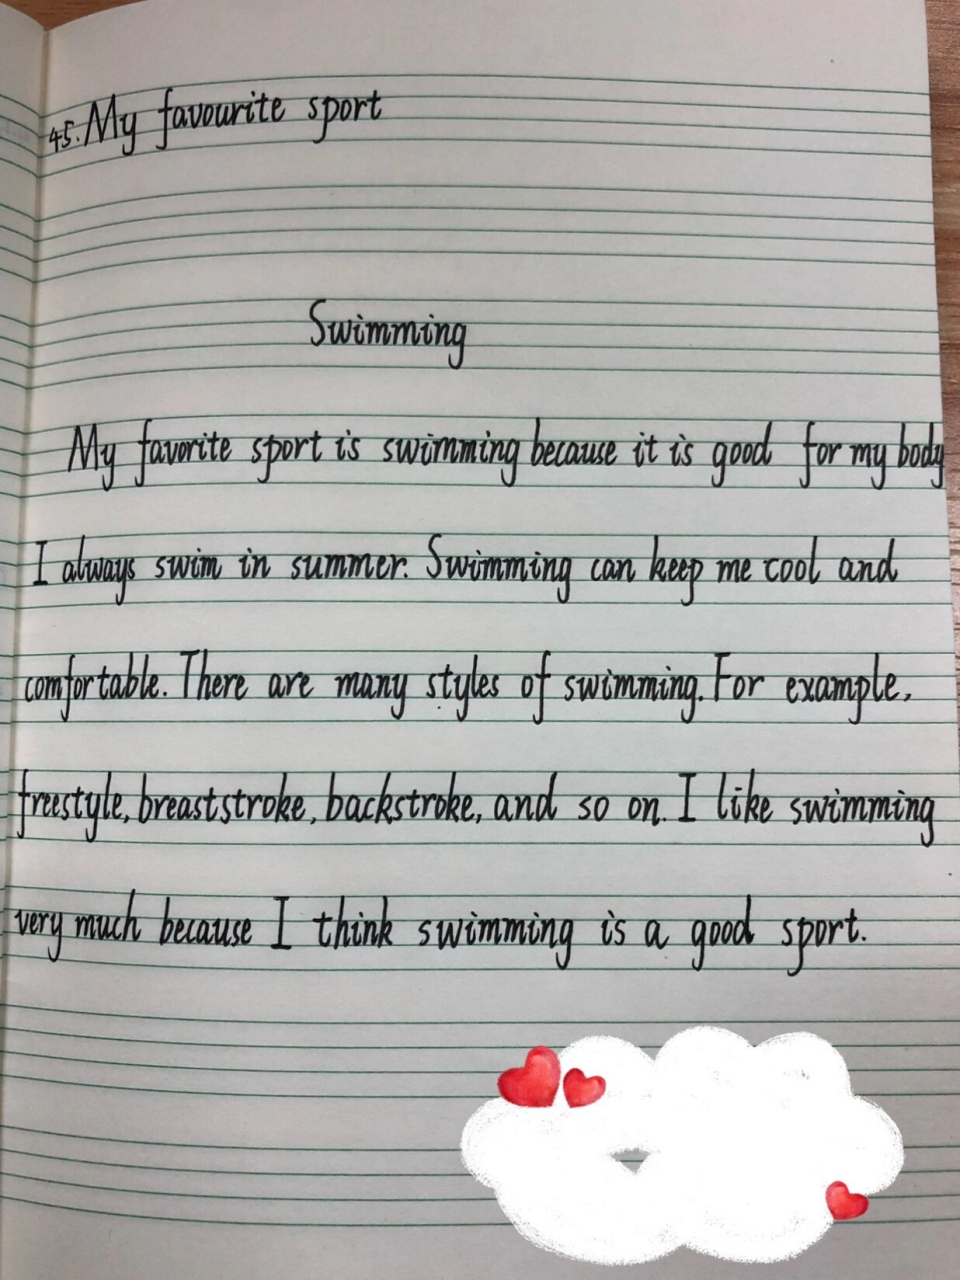 45. My favourite sport
Swimming
My favorite sport is swimming because it is good for my body
I always swim in summer. Swimming can keep me cool and
comfortable. There are many styles of swimming. For example,
freestyle, breaststroke, backstroke, and so on. I like swimming
very much because I think swimming is a good sport.